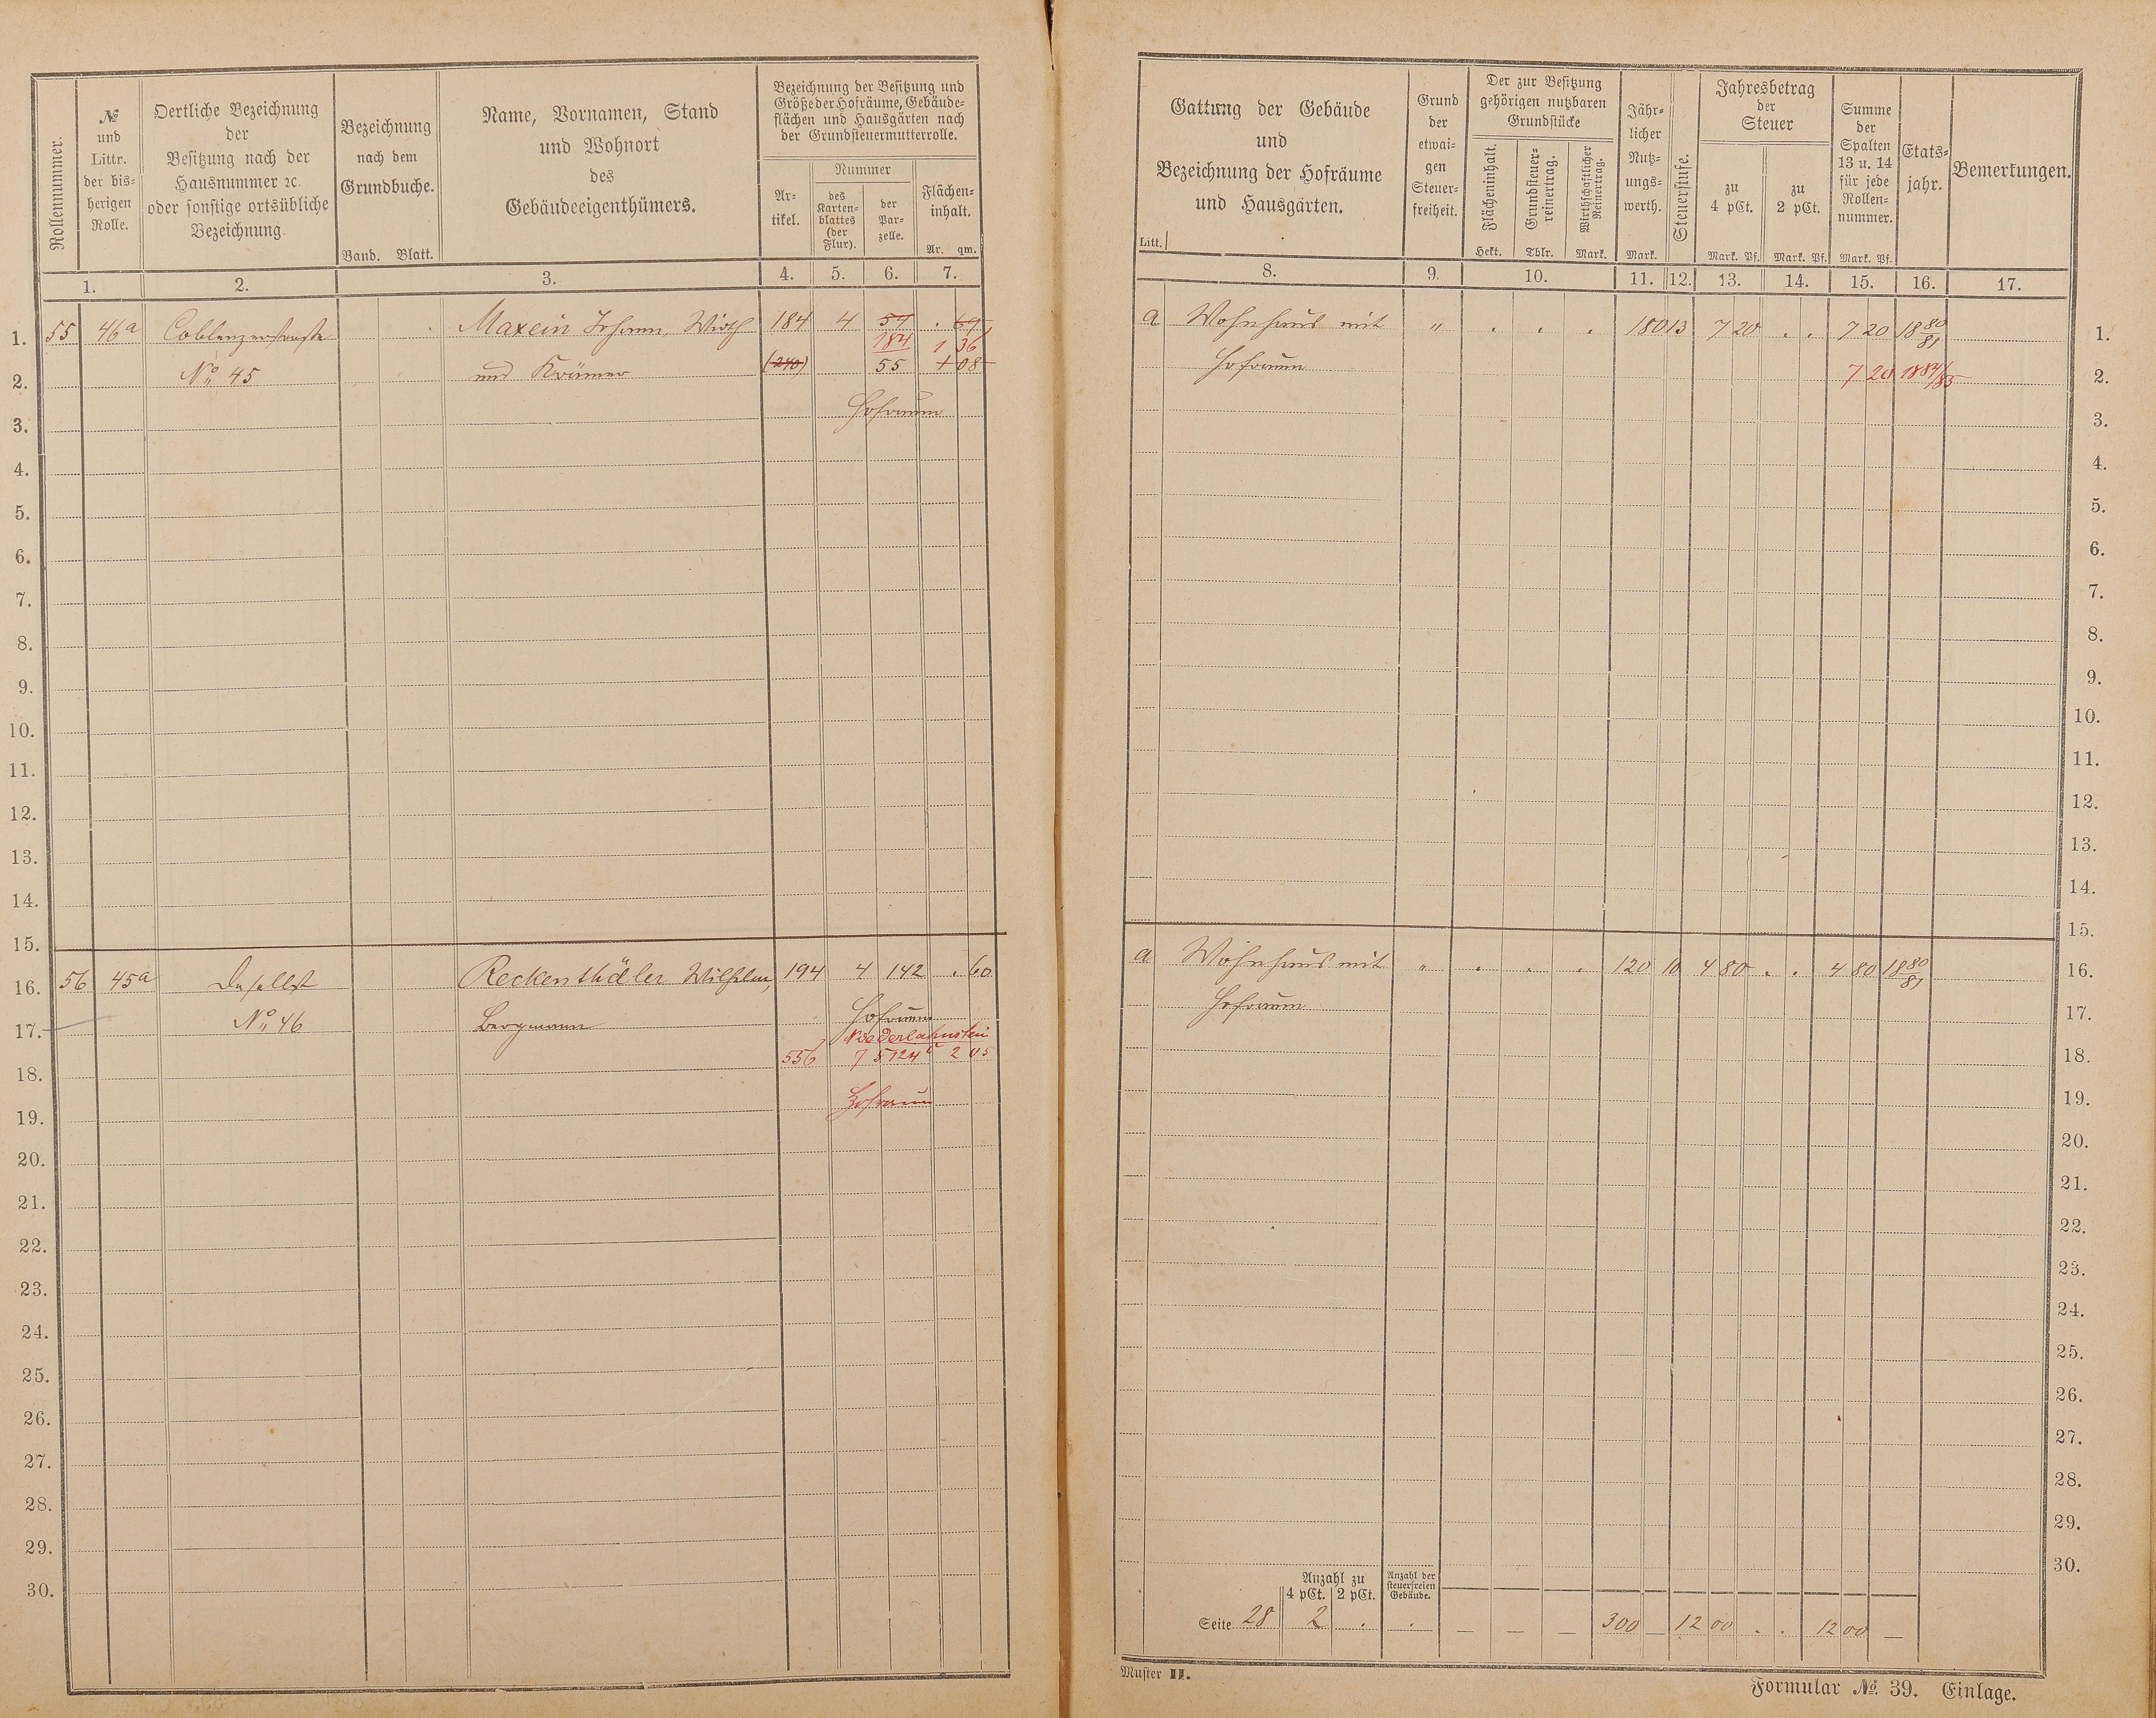 Rollennummer.
№ und Littr. der bisherigen Rolle.
Oertliche Bezeichnung
der
Besitzung nach der
Hausnummer ꝛc.
oder sonstige ortsübliche
Bezeichnung.
Bezeichnung
nach dem
Grundbuche.
Band. Blatt.
Name, Vornamen, Stand
und Wohnort
des
Gebäudeeigenthümers.
Bezeichnung der Besitzung und
Größe der Hofräume, Gebäude-
flächen und Hausgärten nach
der Grundsteuermutterrolle.
Ar-
tikel.
Nummer
des
Karten-
blattes
(der
Flur).
der
Par-
zelle.
Flächen-
inhalt.
Ar. qm.
1. 2. 3. 4. 5. 6. 7.
1. 55 46a Coblenzerstraße Maxein Johann, Wirth 184 4 54 . 64
184 1 36
2. No 45 und Krämer (240) 55 1 08
Hofraum
3.
4.
5.
6.
7.
8.
9.
10.
11.
12.
13.
14.
15.
16. 56 45a Daselbst Reckenthäler Wilhelm, 194 4 142 . 60
17. No 46 Bergmann Hofraum
Niederlahnstein
18. 556 75 124 2 05
19. Hofraum
20.
21.
22.
23.
24.
25.
26.
27.
28.
29.
30.
Gattung der Gebäude
und
Bezeichnung der Hofräume
und Hausgärten.
Litt.
Grund
der
etwai-
gen
Steuer-
freiheit.
Der zur Besitzung
gehörigen nutzbaren
Grundstücke
Flächeninhalt.
Hekt.
Grundsteuer-
reinertrag.
Thlr.
Wirthschaftlicher
Reinertrag.
Mark.
Jähr-
licher
Nutz-
ungs-
werth.
Mark.
Steuerstufe.
Jahresbetrag
der
Steuer
zu
4 pCt.
Mark. Pf.
zu
2 pCt.
Mark. Pf.
Summe
der
Spalten
13 u. 14
für jede
Rollen-
nummer.
Mark. Pf.
Etats-
jahr.
Bemerkungen.
8. 9. 10. 11. 12. 13. 14. 15. 16. 17.
a Wohnhaus mit " . . . 180 13 7 20 . . 7 20 1880/81 1.
Hofraum 7 20 1884/85 2.
3.
4.
5.
6.
7.
8.
9.
10.
11.
12.
13.
14.
15.
a Wohnhaus mit " . . . 120 10 4 80 . . 4 80 1880/81 16.
Hofraum 17.
18.
19.
20.
21.
22.
23.
24.
25.
26.
27.
28.
29.
30.
Anzahl zu
4 pCt. 2 pCt.
Anzahl der
steuerfreien
Gebäude.
Seite 28 2 . . — — — 300 — 12 00 . . 12 00 —
Muster II.
Formular № 39. Einlage.